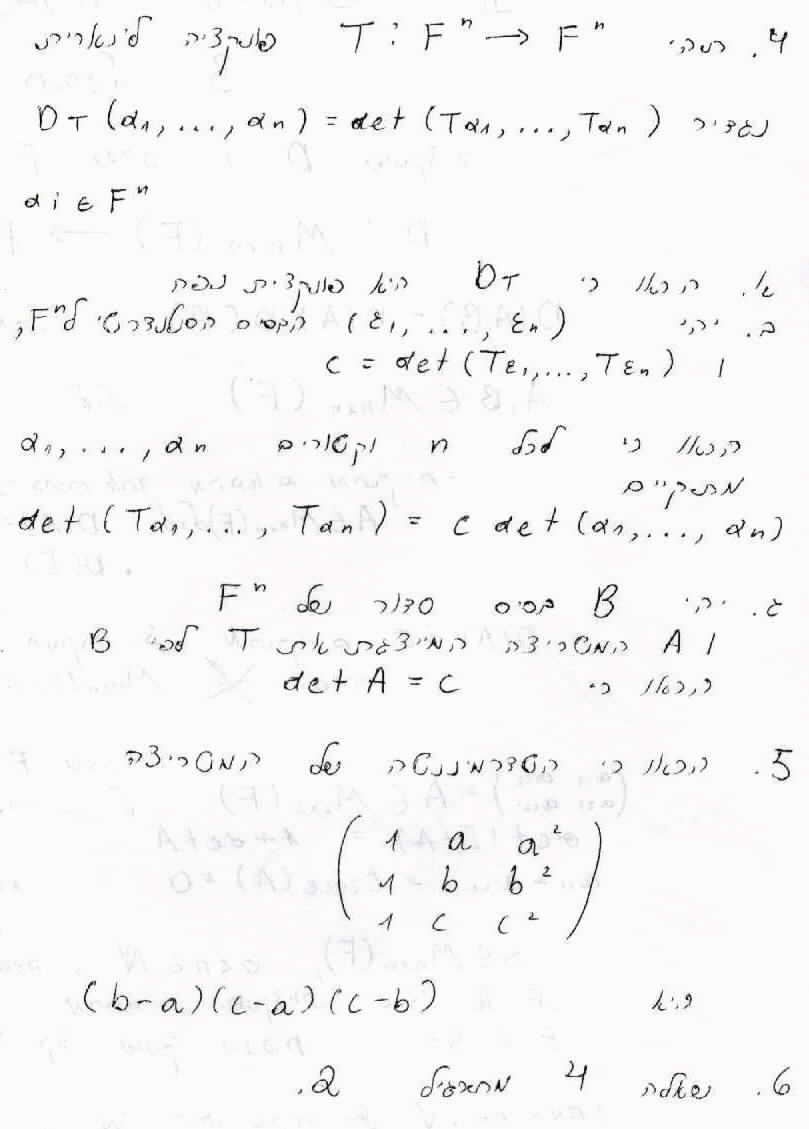 4. תהי T : Fⁿ → Fⁿ פונקציה לינארית
נגדיר D_T (α₁, ..., αₙ) = det (Tα₁, ..., Tαₙ)
αᵢ ∈ Fⁿ
א. הראו כי D_T היא פונקצית נפח
ב. יהי (ε₁, ..., εₙ) הבסיס הסטנדרטי לFⁿ,
ו c = det (Tε₁, ..., Tεₙ)
הראו כי לכל n וקטורים α₁, ..., αₙ
מתקיים
det (Tα₁, ..., Tαₙ) = c det (α₁, ..., αₙ)
ג. יהי B בסיס סדור של Fⁿ
ו A המטריצה המייצגת את T לפי B
הראו כי det A = c
5. הראו כי הדטרמיננטה של המטריצה
1 a a²
1 b b²
1 c c²
היא (b-a)(c-a)(c-b)
6. שאלה 4 מתרגיל 2.